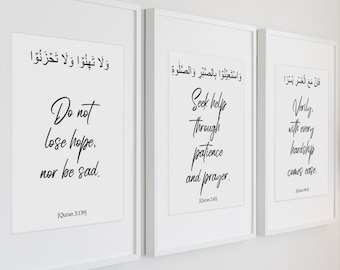 وَلَا تَهِنُوْا وَلَا تَحْزَنُوْا
Do not
lose hope,
nor be sad.
[Quran 3:139]
وَاسْتَعِيْنُوْا بِالصَّبْرِ وَالصَّلٰوةِ
Seek help
through
patience
and prayer.
[Quran 2:45]
فَاِنَّ مَعَ الْعُسْرِ يُسْرًا
Verily,
with every
hardship
comes ease.